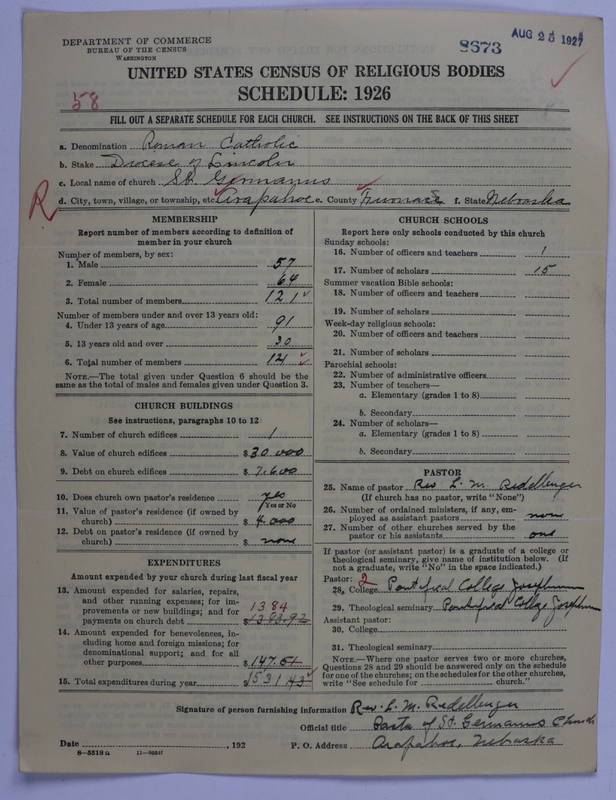 DEPARTMENT OF COMMERCE
BUREAU OF THE CENSUS
WASHINGTON
8673
AUG 25 1927
UNITED STATES CENSUS OF RELIGIOUS BODIES
SCHEDULE: 1926
58
FILL OUT A SEPARATE SCHEDULE FOR EACH CHURCH. SEE INSTRUCTIONS ON THE BACK OF THIS SHEET
a. Denomination Roman Catholic
b. Stake Diocese of Lincoln
c. Local name of church St. Germanus
R
d. City, town, village, or township, etc. Arapahoe e. County Furnas f. State Nebraska
MEMBERSHIP
Report number of members according to definition of
member in your church
Number of members, by sex:
1. Male 57
2. Female 64
3. Total number of members 121
Number of members under and over 13 years old:
4. Under 13 years of age 91
5. 13 years old and over 30
6. Total number of members 121
NOTE.—The total given under Question 6 should be the
same as the total of males and females given under Question 3.
CHURCH BUILDINGS
See instructions, paragraphs 10 to 12
7. Number of church edifices 1
8. Value of church edifices $30.000
9. Debt on church edifices $7.600
10. Does church own pastor's residence yes
Yes or No
11. Value of pastor's residence (if owned by
church) $4.000
12. Debt on pastor's residence (if owned by
church) $none
EXPENDITURES
Amount expended by your church during last fiscal year
13. Amount expended for salaries, repairs,
and other running expenses; for im-
provements or new buildings; and for 1384
payments on church debt $1383.92
14. Amount expended for benevolences, in-
cluding home and foreign missions; for
denominational support; and for all
other purposes $147.51
15. Total expenditures during year $1531.43
CHURCH SCHOOLS
Report here only schools conducted by this church
Sunday schools:
16. Number of officers and teachers 1
17. Number of scholars 15
Summer vacation Bible schools:
18. Number of officers and teachers
19. Number of scholars
Week-day religious schools:
20. Number of officers and teachers
21. Number of scholars
Parochial schools:
22. Number of administrative officers
23. Number of teachers—
a. Elementary (grades 1 to 8)
b. Secondary
24. Number of scholars—
a. Elementary (grades 1 to 8)
b. Secondary
PASTOR
25. Name of pastor Rev L. M. Redellenger
(If church has no pastor, write "None")
26. Number of ordained ministers, if any, em-
ployed as assistant pastors none
27. Number of other churches served by the
pastor or his assistants one
If pastor (or assistant pastor) is a graduate of a college or
theological seminary, give name of institution below. (If
not a graduate, write "No" in the space indicated.)
Pastor: 2
28. College Pontifical College Josephinum
29. Theological seminary Pontifical College Josephinum
Assistant pastor:
30. College
31. Theological seminary
NOTE.—Where one pastor serves two or more churches,
Questions 28 and 29 should be answered only on the schedule
for one of the churches; on the schedules for the other churches,
write "See schedule for church."
Signature of person furnishing information Rev. L. M. Redellenger
Official title Pastor of St. Germanus Church
Date , 192 P. O. Address Arapahoe, Nebraska
8—5518a